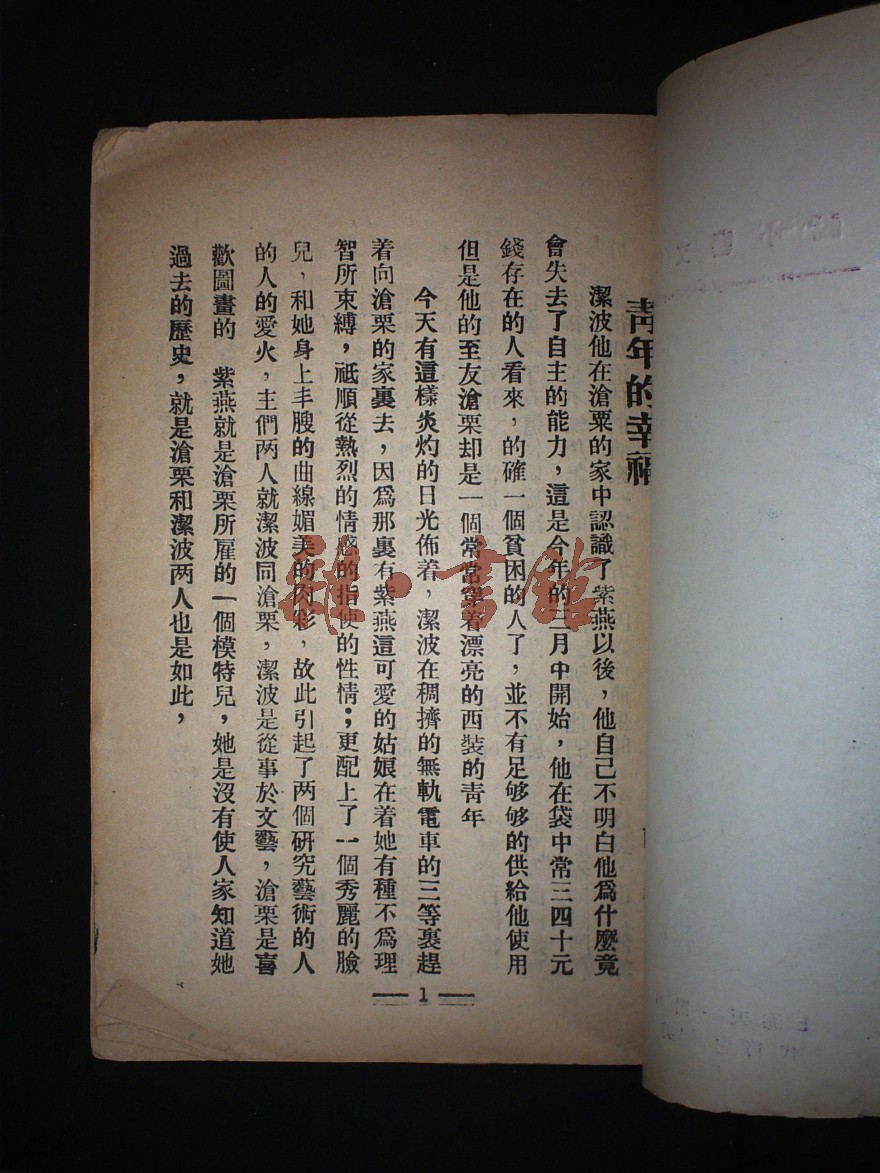 青年的幸福
潔波他在滄粟的家中認識了紫燕以後，他自己不明白他爲什麼竟
會失去了自主的能力，這是今年的三月中開始，他在袋中常三四十元
錢存在的人看來，的確一個貧困的人了，並不有足够够的供給他使用
但是他的至友滄栗却是一個常常穿着漂亮的西裝的靑年
今天有這樣炎灼的日光佈着，潔波在稠擠的無軌電車的三等裏趕
着向滄栗的家裏去，因爲那裏有紫燕這可愛的姑娘在着她有種不爲理
智所束縛，祗順從熱烈的情感的指使的性情；更配上了一個秀麗的臉
兒，和她身上丰膄的曲線媚美的肉彩，故此引起了两個研究藝術的人
的人的愛火，主們两人就潔波同滄栗，潔波是從事於文藝，滄栗是喜
歡圖畫的　紫燕就是滄栗所雇的一個模特兒，她是沒有使人家知道她
過去的歷史，就是滄栗和潔波两人也是如此，
1
雅·書館